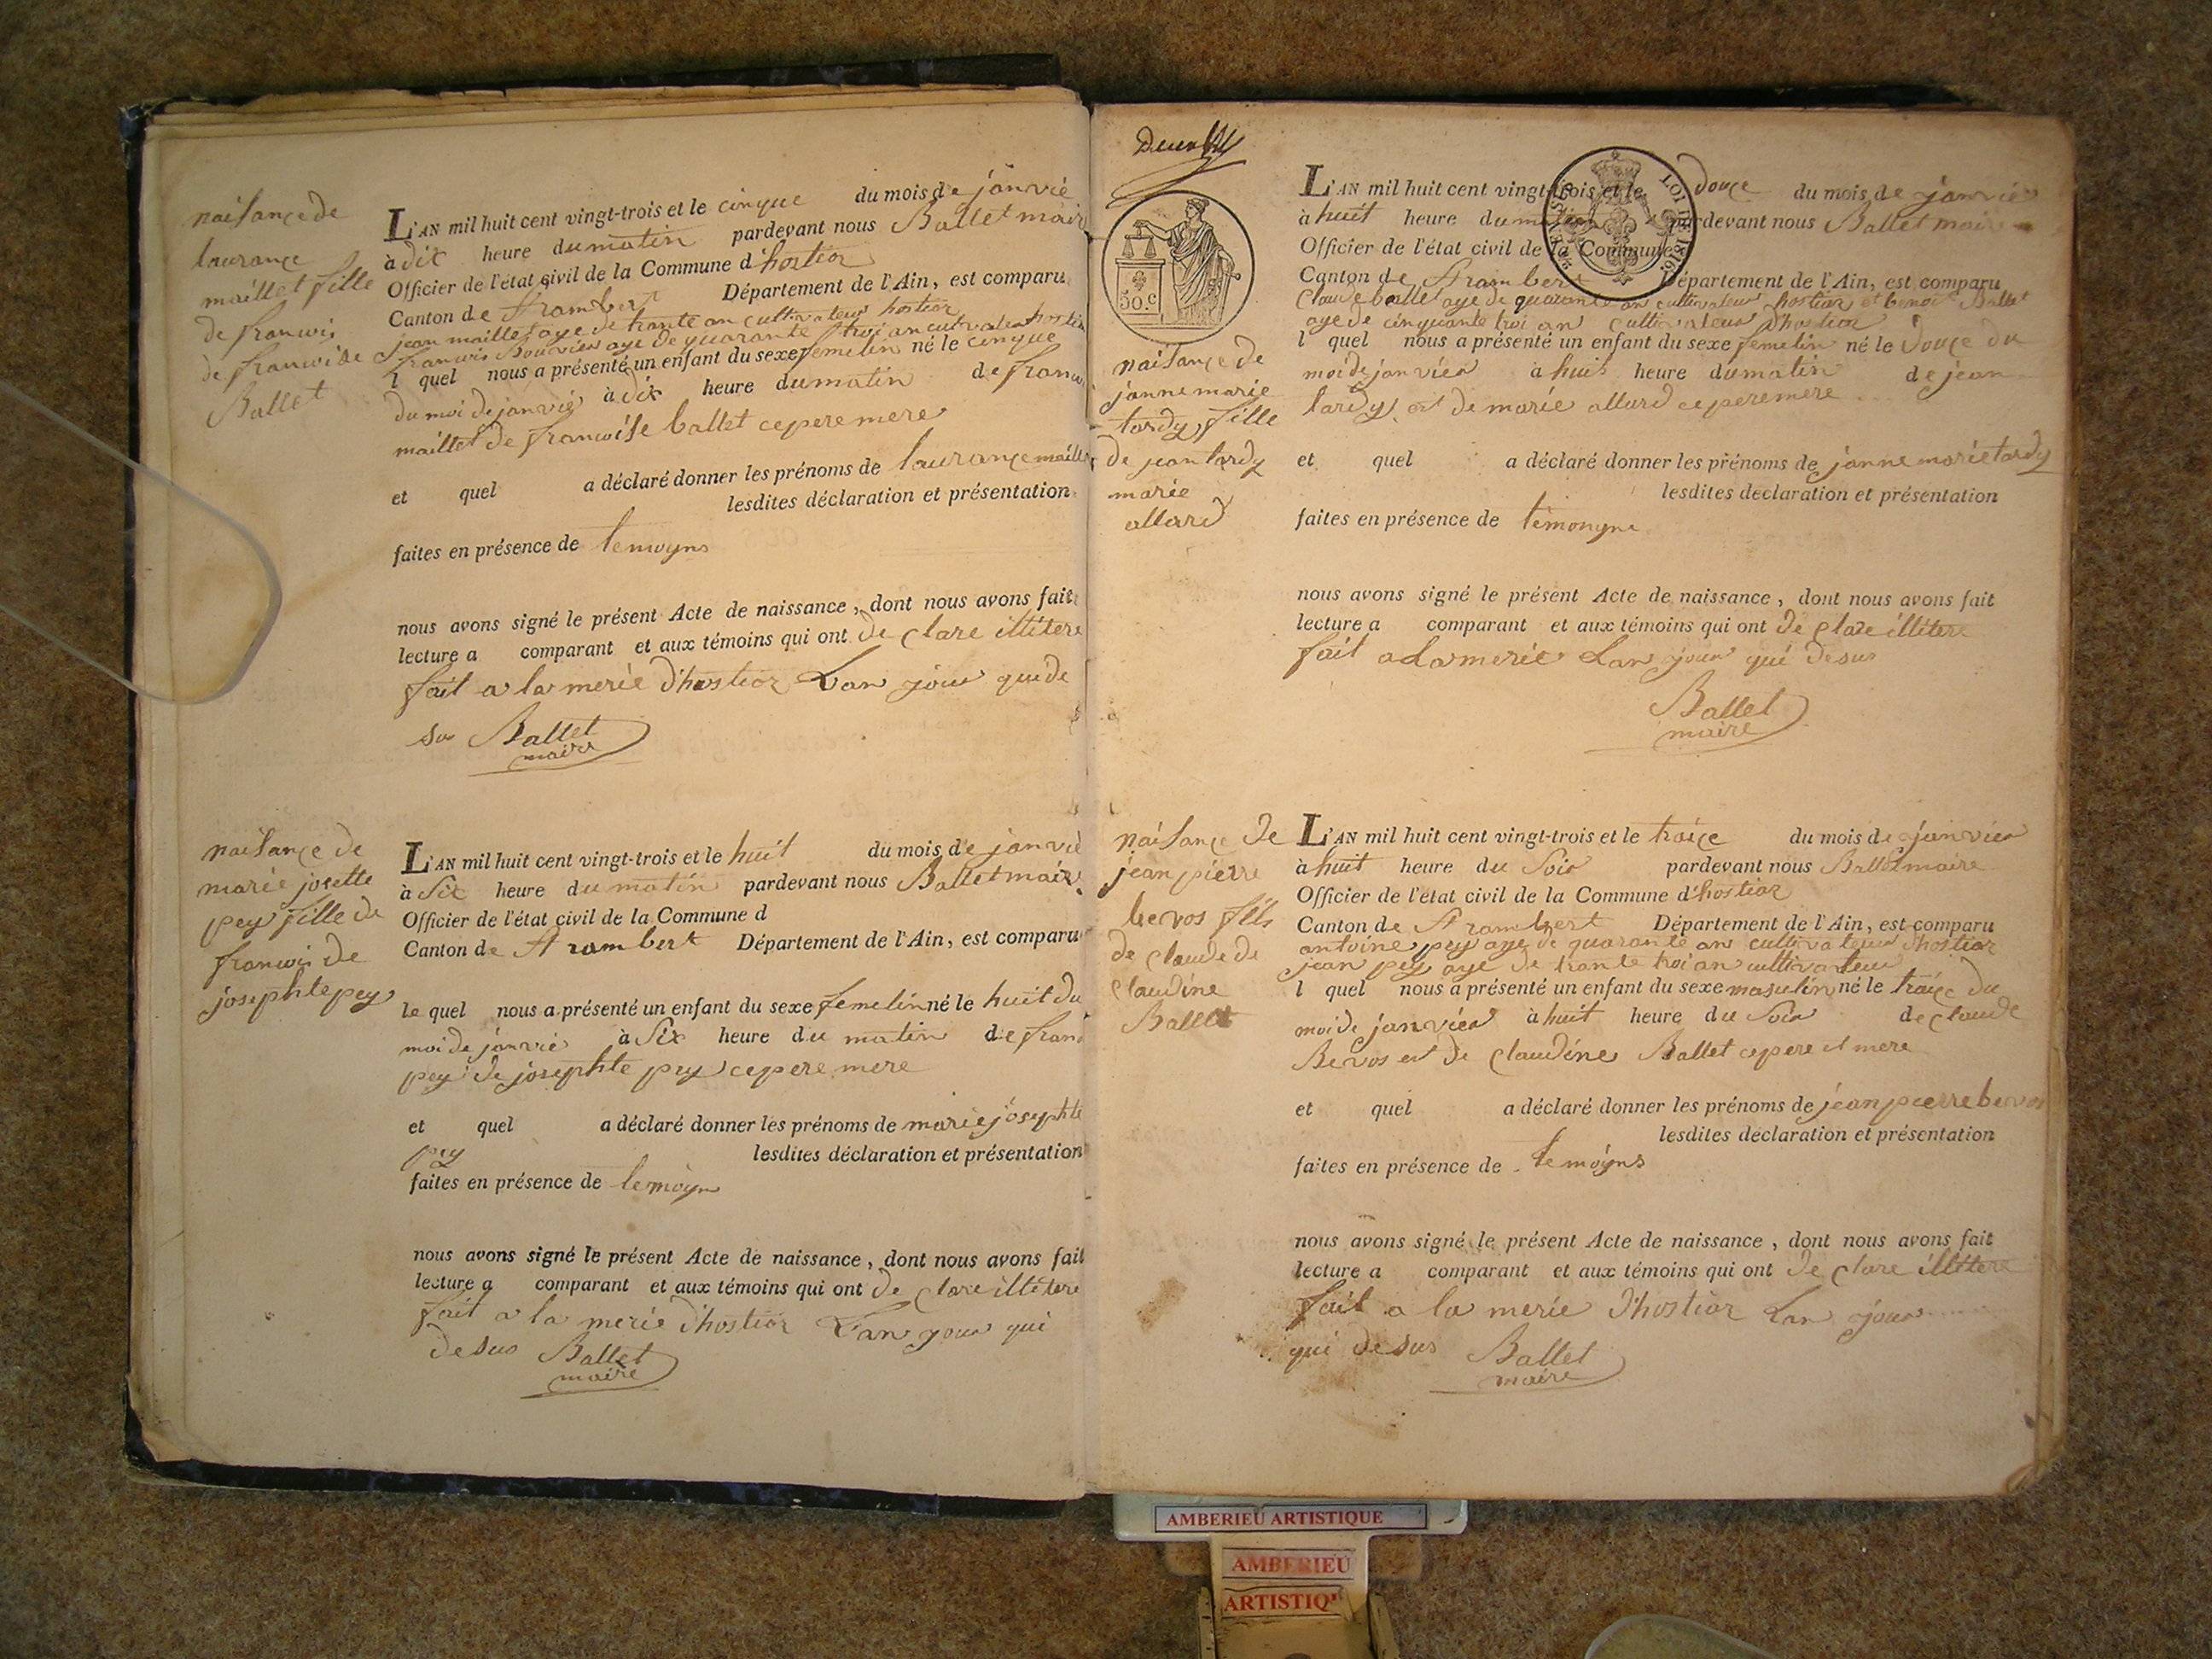 naisançe de
laurançe
maillet fille
de franwis
de franwise
Ballet
L'AN mil huit cent vingt-trois et le cinque du mois de janvié
à dix heure du matin pardevant nous Ballet maire
Officier de l'état civil de la Commune d'hostiaz
Canton de St rambert Département de l'Ain, est comparu
jean maillet aye de trante an cultivateur hostiaz
franwis Bouvier aye de quarante troi an
l quel nous a présenté un enfant du sexe femelin né le cinque
du moi de janvié à dix heure du matin de
maillet de franwise ballet ce pere mere
et quel a déclaré donner les prénoms de laurançe
lesdites déclaration et présentation
faites en présence de temoyns
nous avons signé le présent Acte de naissance, dont nous avons fait
lecture a comparant et aux témoins qui ont de clare illitere
fait a la merie d'hostiaz Lan jour qui de
sus Ballet
maire
naisançe de
marie josette
pey fille de
franwis de
josephte pey
L'AN mil huit cent vingt-trois et le huit du mois de janvié
à Six heure du matin pardevant nous Ballet maire
Officier de l'état civil de la Commune d
Canton de St rambert Département de l'Ain, est comparu
le quel nous a présenté un enfant du sexe femelin né le huit du
moi de janvié à Six heure du matin de
pey de josephte pey ce pere mere
et quel a déclaré donner les prénoms de marie josephte
pey lesdites déclaration et présentation
faites en présence de temoyn
nous avons signé le présent Acte de naissance, dont nous avons fait
lecture a comparant et aux témoins qui ont de clare illitere
fait a la merie d'hostiaz Lan jour qui
desus Ballet
maire
50.c
naisançe de
janne marie
tardy fille
de jean tardy
marie
allard
LOI DE 1816
L'AN mil huit cent vingt-trois et le douçe du mois de janvier
à huit heure du matin pardevant nous Ballet maire
Officier de l'état civil de la Commune
Canton de St rambert Département de l'Ain, est comparu
Claude ballet aye de quarante an cultivateur hostiaz et benoi Ballet
aye de cinquante troi an cultivateur d'hostiaz
l quel nous a présenté un enfant du sexe femelin né le douçe du
moi de janvier à huit heure du matin de jean
tardy et de marie allard ce pere mere
et quel a déclaré donner les prénoms de janne marie tardy
lesdites déclaration et présentation
faites en présence de
nous avons signé le présent Acte de naissance, dont nous avons fait
lecture a comparant et aux témoins qui ont de clare illitere
fait a la merie Lan jour qui desus
Ballet
maire
naisançe de
jean pierre
bervos fils
de claude de
claudine
Ballet
L'AN mil huit cent vingt-trois et le traiçe du mois de janvier
à huit heure du Soir pardevant nous Ballet maire
Officier de l'état civil de la Commune d'hostiaz
Canton de St rambert Département de l'Ain, est comparu
antoine pey aye de quarante an cultivateur d'hostiaz
jean pey aye de trante troi an cultivateur
l quel nous a présenté un enfant du sexe masculin né le traiçe du
moi de janvier à huit heure du Soir de claude
Bervos et de claudine Ballet ce pere et mere
et quel a déclaré donner les prénoms de jean pierre bervos
lesdites déclaration et présentation
faites en présence de temoyns
nous avons signé le présent Acte de naissance, dont nous avons fait
lecture a comparant et aux témoins qui ont de clare illitere
fait a la merie d'hostiaz Lan jour
qui desus Ballet
maire
AMBERIEU ARTISTIQUE
AMBERIEU
ARTISTIQ